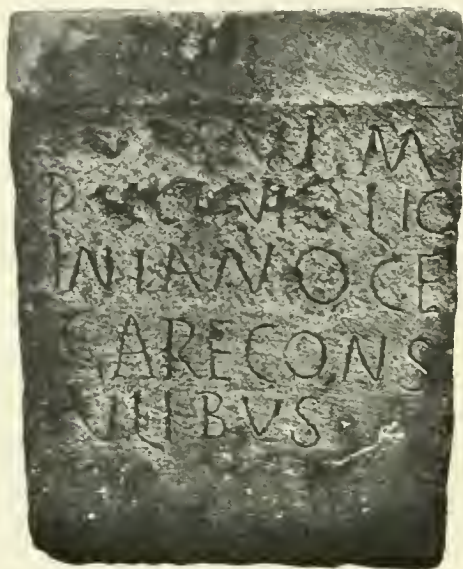 VI M
P LIC
INIANOCE
SARECONS
VLIBVS